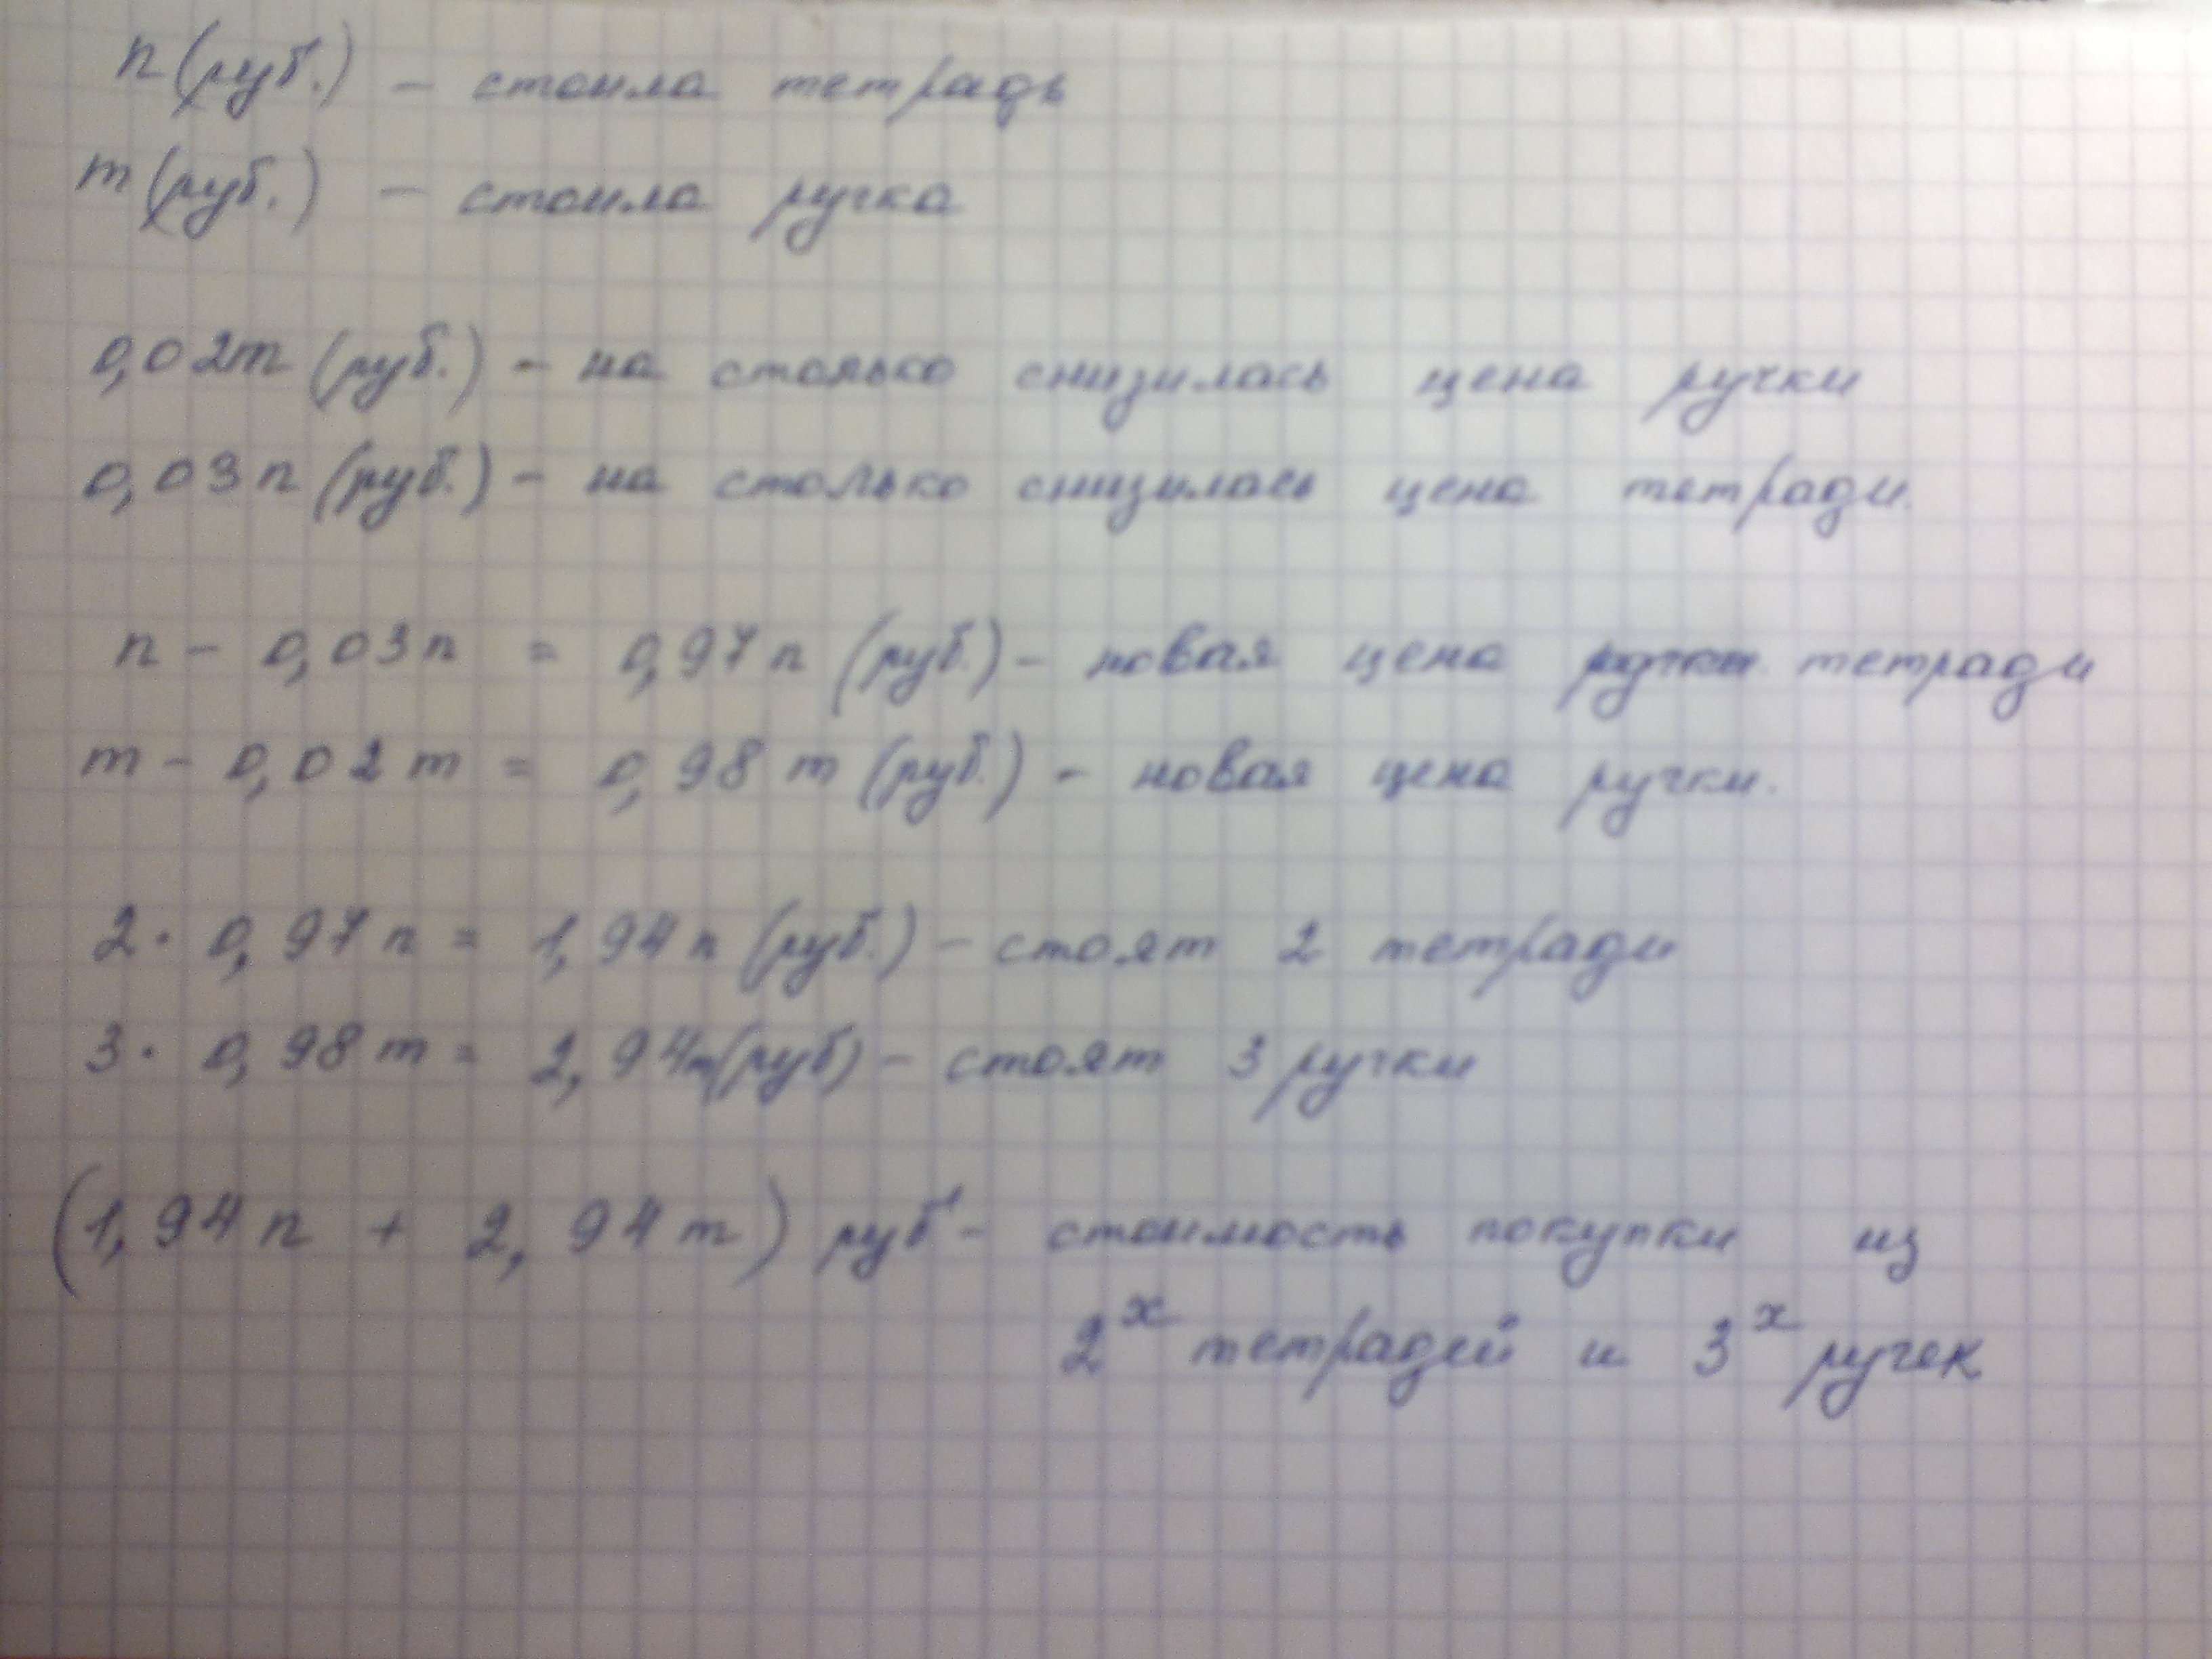 n (руб.) – стоила тетрадь
m (руб.) – стоила ручка
0,02m (руб.) – на столько снизилась цена ручки
0,03n (руб.) – на столько снизилась цена тетради.
n – 0,03n = 0,97n (руб.) – новая цена ручки тетради
m – 0,02m = 0,98m (руб.) – новая цена ручки.
2 · 0,97n = 1,94n (руб.) – стоят 2 тетради
3 · 0,98m = 2,94m (руб) – стоят 3 ручки
(1,94n + 2,94m) руб – стоимость покупки из
2ˣ тетрадей и 3ˣ ручек